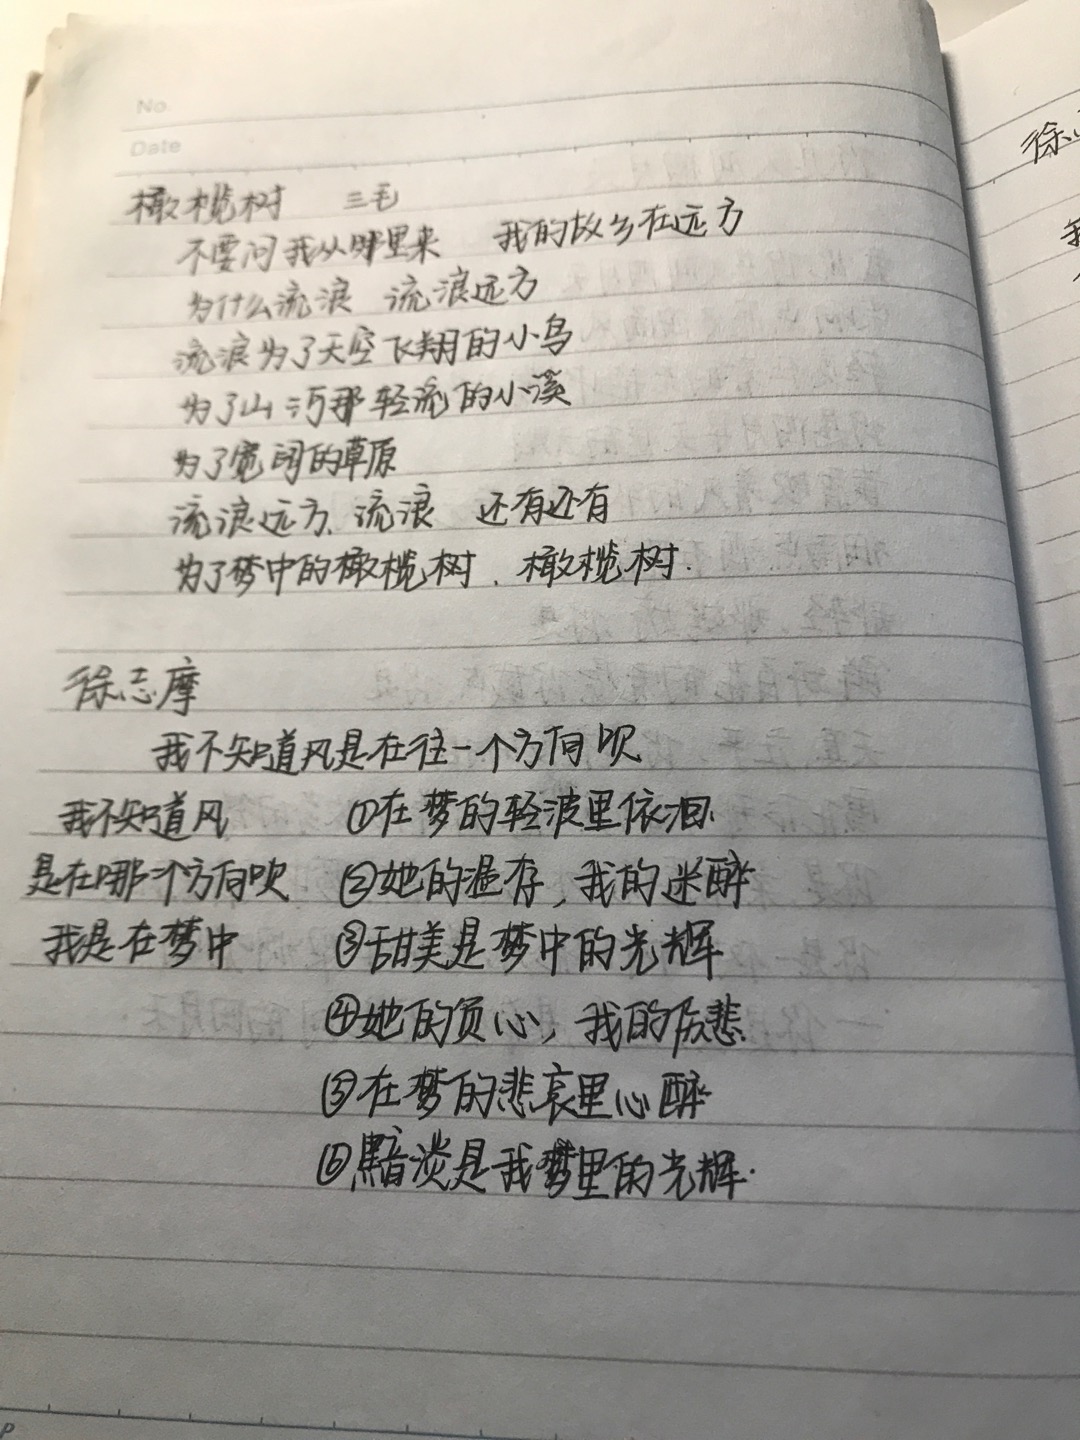 No.
Date
橄榄树 三毛
不要问我从哪里来 我的故乡在远方
为什么流浪 流浪远方
流浪为了天空飞翔的小鸟
为了山河那轻流的小溪
为了宽阔的草原
流浪远方、流浪 还有还有
为了梦中的橄榄树、橄榄树.
徐志摩
我不知道风是在往一个方向吹
我不知道风 ①在梦的轻波里依洄.
是在哪个方向吹 ②她的温存,我的迷醉
我是在梦中 ③甜美是梦中的光辉
④她的负心,我的伤悲.
⑤在梦的悲哀里心醉
⑥黯淡是我梦里的光辉.
徐
我